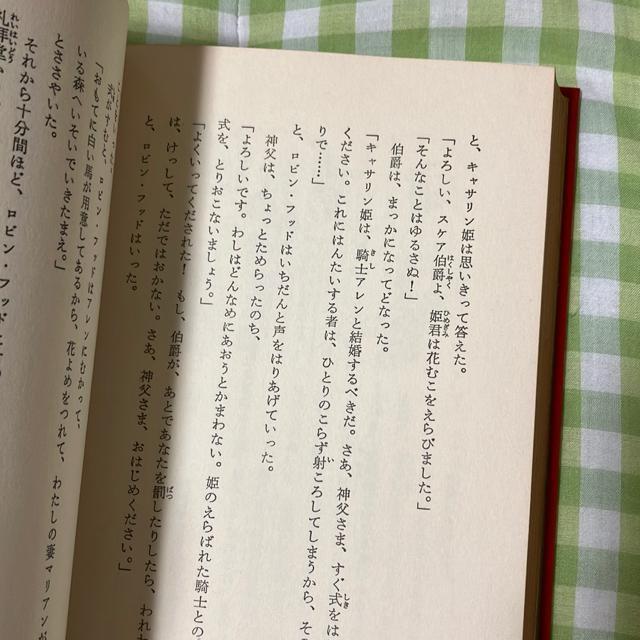 と、キャサリン姫は思いきって答えた。
「よろしい、スケア伯爵よ、姫君は花むこをえらびました。」
「そんなことはゆるさぬ！」
伯爵は、まっかになってどなった。
「キャサリン姫は、騎士アレンと結婚するべきだ。さあ、神父さま、すぐ式をは
ください。これにはんたいする者は、ひとりのこらず射ころしてしまうから、そ
りで……」
と、ロビン・フッドはいちだんと声をはりあげていった。
神父は、ちょっとためらったのち、
「よろしいです。わしはどんなめにあおうとかまわない。姫のえらばれた騎士との
式を、とりおこないましょう。」
「よくいってくだされた！　もし、伯爵が、あとであなたを罰したりしたら、われわ
は、けっして、ただではおかない。さあ、神父さま、おはじめください。」
と、ロビン・フッドはいった。
式がすむと、ロビン・フッドはアレンにむかって、
「おもてに白い馬が用意してあるから、花よめをつれて、わたしの妻マリアンが
いる森へいそいでいきたまえ。」
とささやいた。
それから十分間ほど、ロビン・フッド
礼拝堂